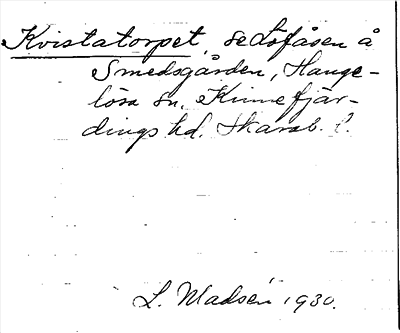 Kvistatorpet, se Åsfåsen å
Smedsgården, Hange-
lösa sn. Kinnefjär-
dings hd. Skarab. l.
L. Madsén 1930.